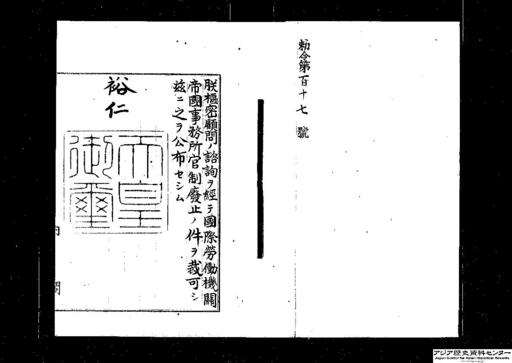 勅令第百十七號
朕樞密顧問ノ諮詢ヲ經テ國際勞働機關
帝國事務所官制廢止ノ件ヲ裁可シ
茲ニ之ヲ公布セシム
裕仁
天皇
御璽
内閣
アジア歴史資料センター
Japan Center for Asian Historical Records